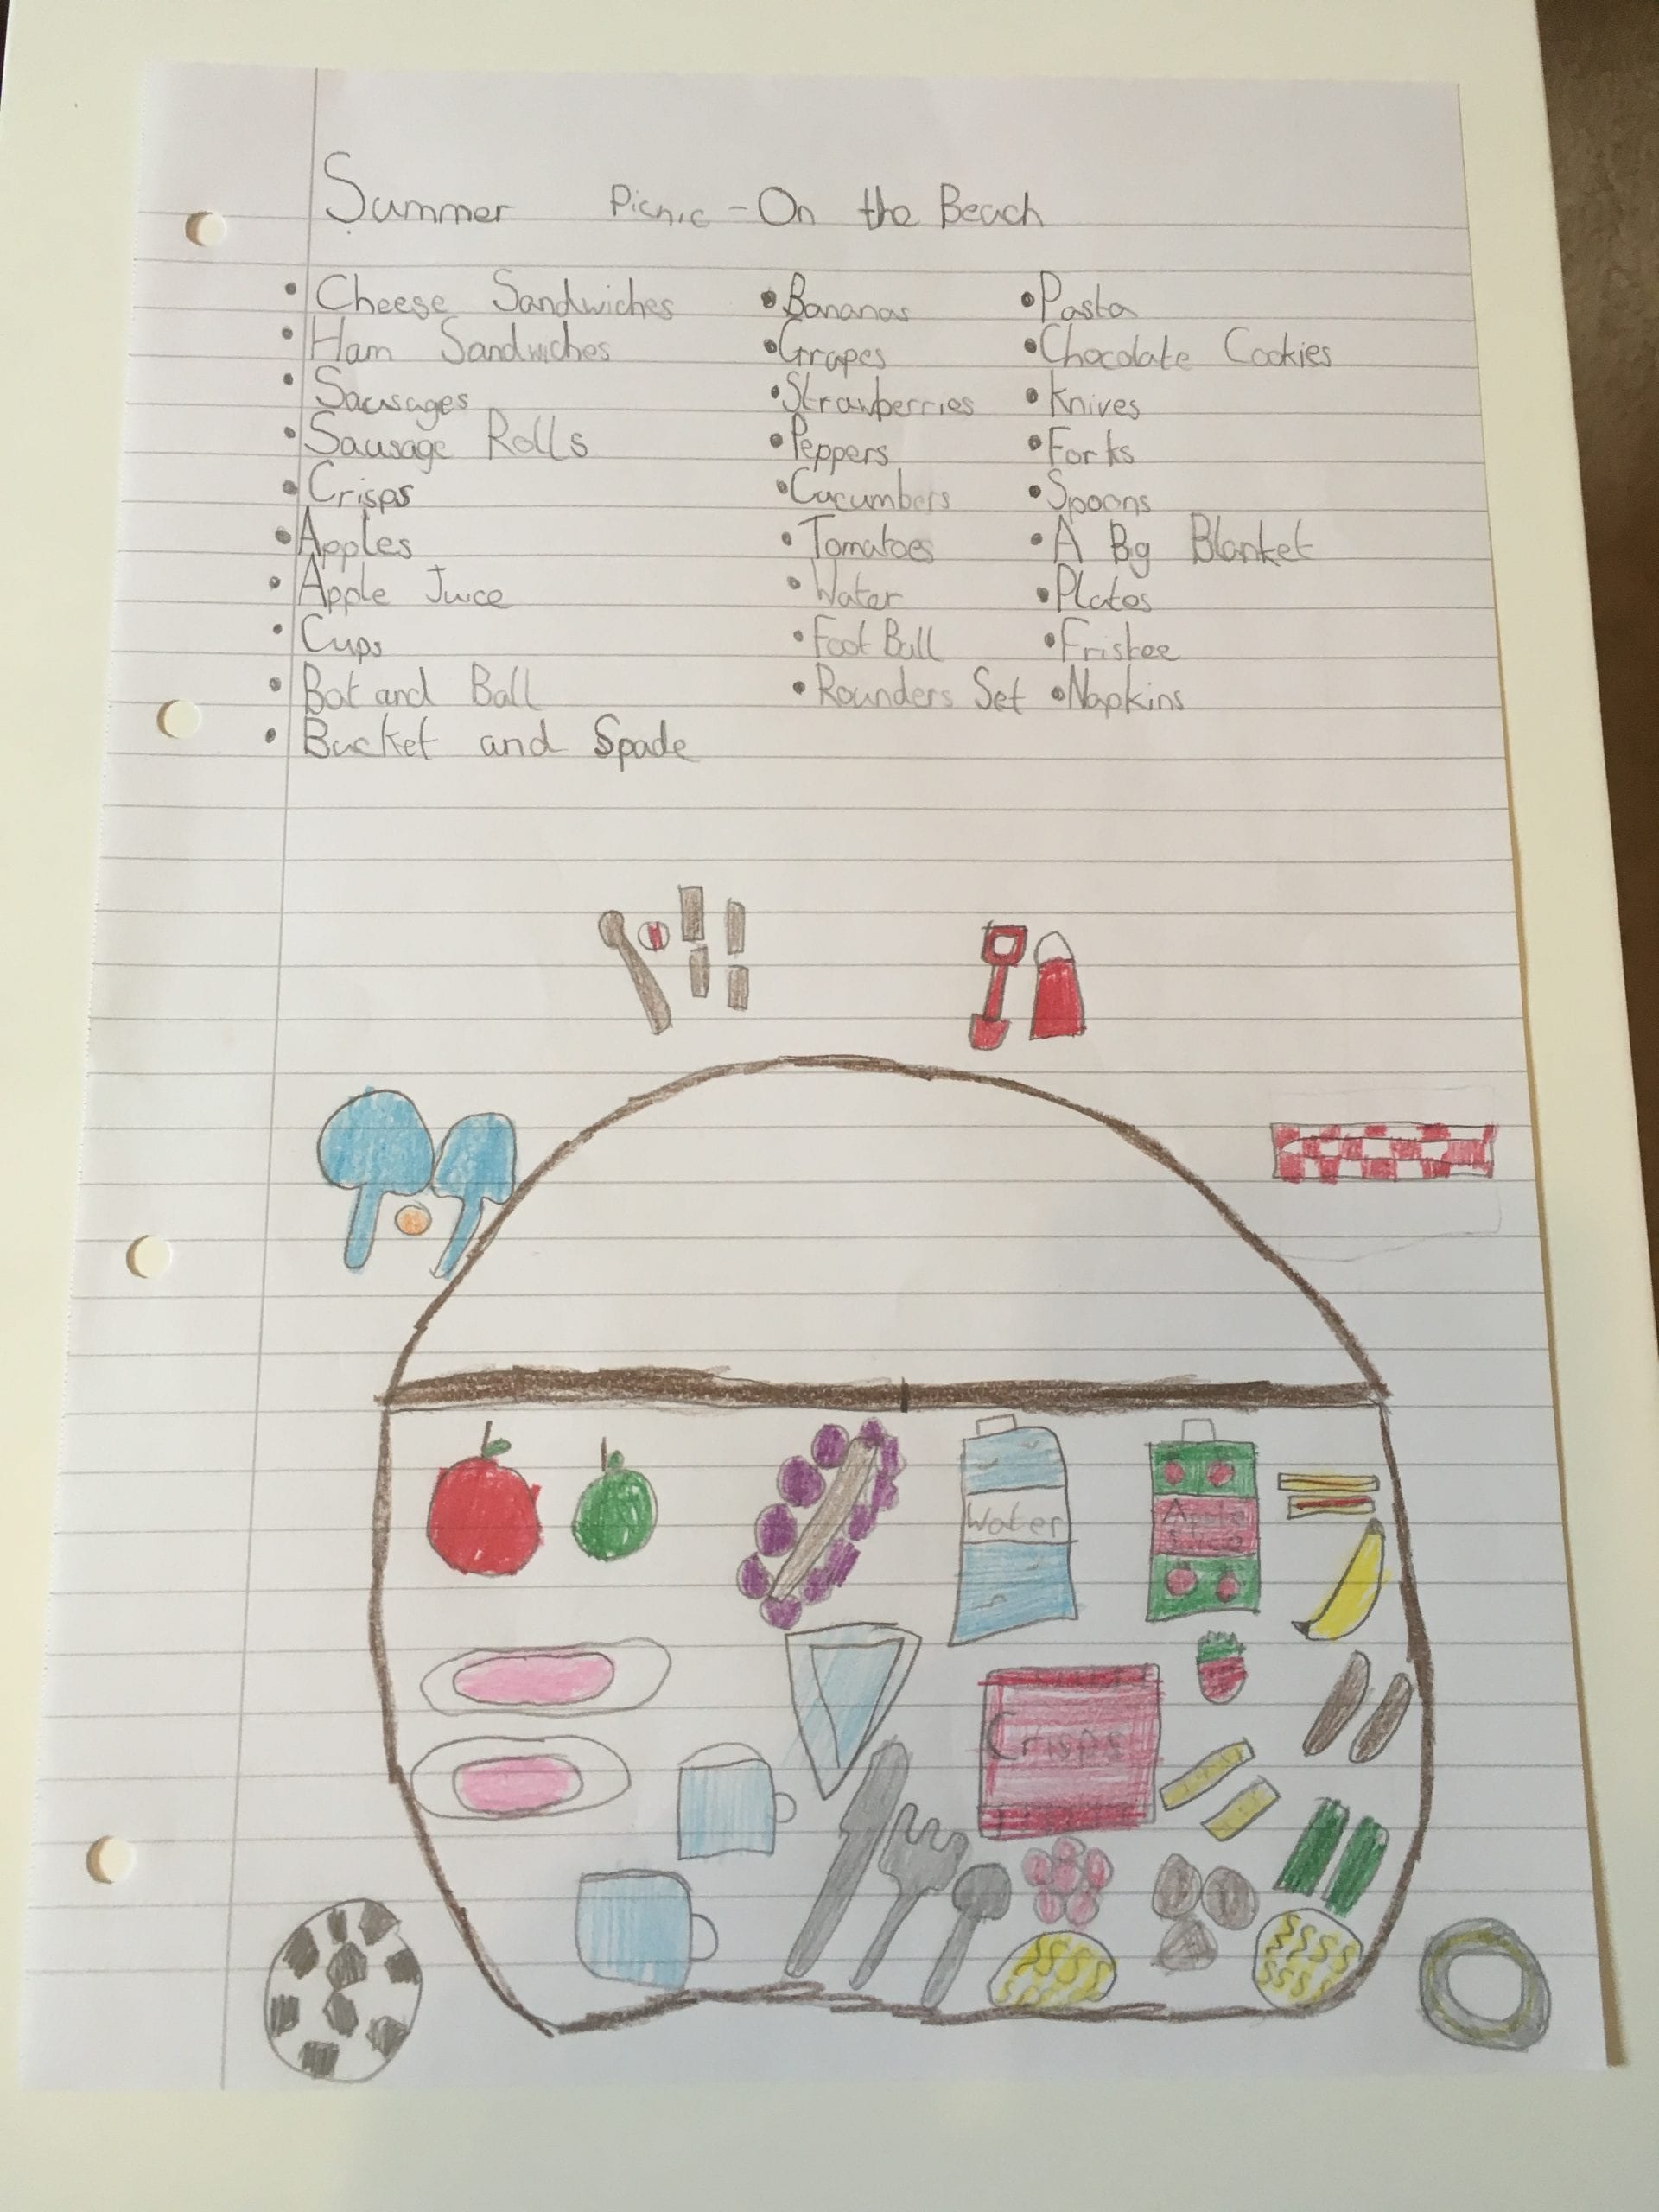 Summer Picnic - On the Beach
• Cheese Sandwiches
• Ham Sandwiches
• Sausages
• Sausage Rolls
• Crisps
• Apples
• Apple Juice
• Cups
• Bat and Ball
• Bucket and Spade
• Bananas
• Grapes
• Strawberries
• Peppers
• Cucumbers
• Tomatoes
• Water
• Foot Ball
• Rounders Set
• Pasta
• Chocolate Cookies
• Knives
• Forks
• Spoons
• A Big Blanket
• Plates
• Frisbee
• Napkins
Water
Apple
Juice
Crisps